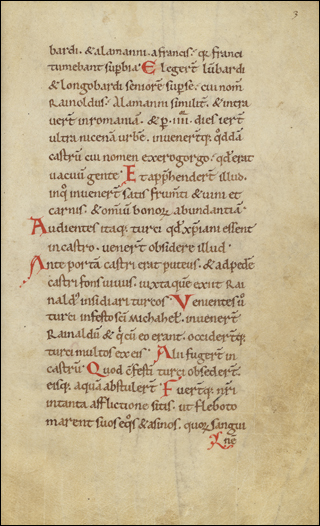 3
bardi. & alamanni. a francis. qr franci
tumebant supbia. Elegerť lūbardi
& longobardi seniorē sup se. cui nom̄
Rainoldus. Alamanni similit. & intra
verť in romaniā. & p. iiii. dies ierť
ultra nicenā urbē. inuenerťq; qđdā
castrū cui nomen exerogorgo. qđ erat
vacuū gente. Et apphenderť illud.
inq̊ inuenerť satis frum̄ti & uini et
carnis. & om̄iū bonoꝝ abundantiā.
Audientes itaq; turci qđ xpīani essent
in castro. venerť obsidere illud.
Ante portā castri erat puteus. & ad pedē
castri fons uiuus. iuxta quē exiit Rai
nald᷒ insidiari turcos. Venientes ů
turci in festo sc̄i Michahel᷒. inuenerť
Rainaldū & q̇ cū eo erant. occiderťq;
turci multos ex eis. Alii fugerť in
castrū. Quod c̄festī turci obsederť.
eisq; aquā abstulerť. Fuerťq; nr̄i
in tanta afflictione sitis. ut fleboto
marent suos eq̊s & asinos. quoꝝ sangui
nē